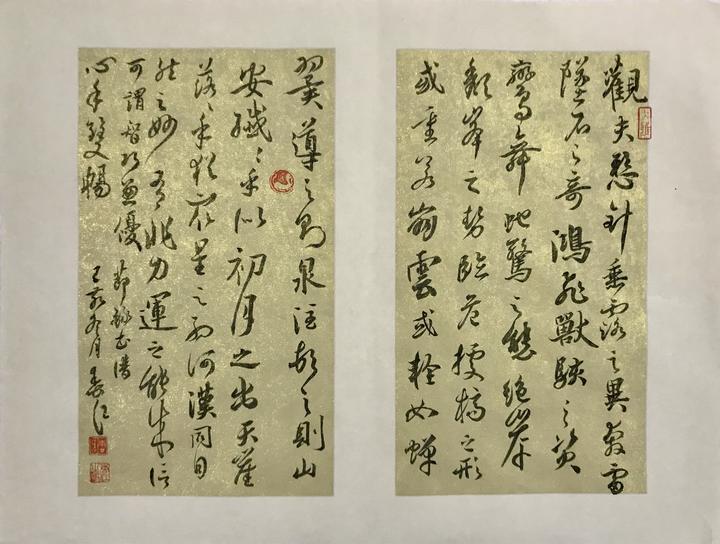 觀夫懸針垂露之異奔雷
墜石之奇鴻飛獸駭之資
鸞舞蛇驚之態絕岸
頹峯之勢臨危據槁之形
或重若崩雲或輕如蟬
翼導之則泉注頓之則山
安纖〻乎似初月之出天崖
落〻乎猶眾星之列河漢同自
然之妙有非力運之能成信
可謂智巧兼優
心手雙暢
節錄書譜
己亥冬月